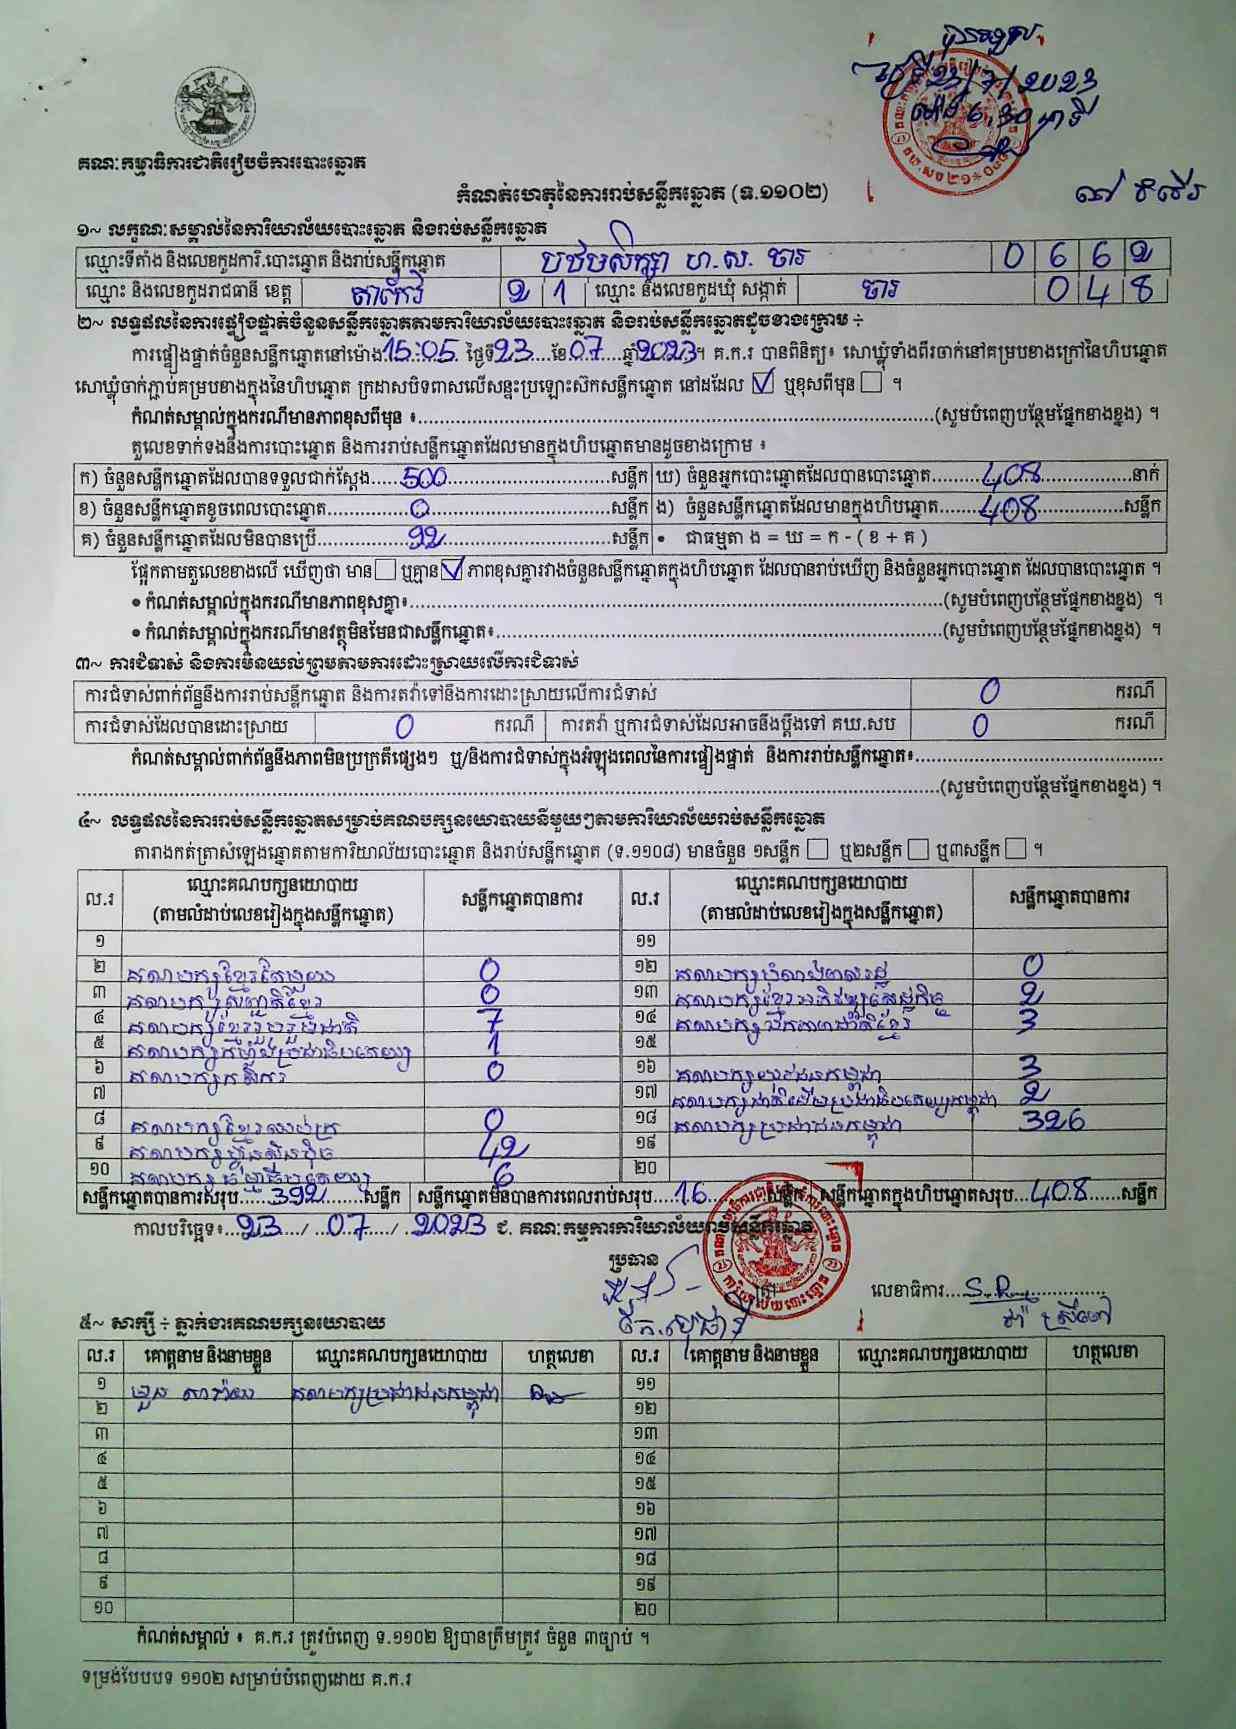 គណៈកម្មាធិការជាតិរៀបចំការបោះឆ្នោត
កំណត់ហេតុនៃការរាប់សន្លឹកឆ្នោត (ទ.១១០២)
១~ លក្ខណៈសម្គាល់នៃការិយាល័យបោះឆ្នោត និងរាប់សន្លឹកឆ្នោត
ឈ្មោះទីតាំង និងលេខកូដការិ.បោះឆ្នោត និងរាប់សន្លឹកឆ្នោត បឋមសិក្សា ហ.ស. ចារ 0662
ឈ្មោះ និងលេខកូដរាជធានី ខេត្ត តាកែវ 21 ឈ្មោះ និងលេខកូដឃុំ សង្កាត់ ចារ 048
២~ លទ្ធផលនៃការផ្ទៀងផ្ទាត់ចំនួនសន្លឹកឆ្នោតតាមការិយាល័យបោះឆ្នោត និងរាប់សន្លឹកឆ្នោតដូចខាងក្រោម ÷
ការផ្ទៀងផ្ទាត់ចំនួនសន្លឹកឆ្នោតនៅម៉ោង 15:05 ថ្ងៃទី 23 ខែ 07 ឆ្នាំ 2023។ គ.ក.រ បានពិនិត្យ៖ សោឃ្លុំទាំងពីរចាក់នៅគម្របខាងក្រៅនៃហិបឆ្នោត
សោឃ្លុំចាក់ភ្ជាប់គម្របខាងក្នុងនៃហិបឆ្នោត ក្រដាសបិទពាសលើសន្ទះប្រឡោះស៊កសន្លឹកឆ្នោត នៅដដែល ☑ ឬខុសពីមុន ☐ ។
កំណត់សម្គាល់ក្នុងករណីមានភាពខុសពីមុន ៖..........(សូមបំពេញបន្ថែមផ្នែកខាងខ្នង) ។
តួលេខទាក់ទងនឹងការបោះឆ្នោត និងការរាប់សន្លឹកឆ្នោតដែលមានក្នុងហិបឆ្នោតមានដូចខាងក្រោម ៖
ក) ចំនួនសន្លឹកឆ្នោតដែលបានទទួលជាក់ស្តែង 500 សន្លឹក ឃ) ចំនួនអ្នកបោះឆ្នោតដែលបានបោះឆ្នោត 408 នាក់
ខ) ចំនួនសន្លឹកឆ្នោតខូចពេលបោះឆ្នោត 0 សន្លឹក ង) ចំនួនសន្លឹកឆ្នោតដែលមានក្នុងហិបឆ្នោត 408 សន្លឹក
គ) ចំនួនសន្លឹកឆ្នោតដែលមិនបានប្រើ 92 សន្លឹក • ជាធម្មតា ង = ឃ = ក - ( ខ + គ )
ផ្អែកតាមតួលេខខាងលើ ឃើញថា មាន ☐ ឬគ្មាន ☑ ភាពខុសគ្នារវាងចំនួនសន្លឹកឆ្នោតក្នុងហិបឆ្នោត ដែលបានរាប់ឃើញ និងចំនួនអ្នកបោះឆ្នោត ដែលបានបោះឆ្នោត ។
• កំណត់សម្គាល់ក្នុងករណីមានភាពខុសគ្នា៖..........(សូមបំពេញបន្ថែមផ្នែកខាងខ្នង) ។
• កំណត់សម្គាល់ក្នុងករណីមានវត្ថុមិនមែនជាសន្លឹកឆ្នោត៖..........(សូមបំពេញបន្ថែមផ្នែកខាងខ្នង) ។
៣~ ការជំទាស់ និងការមិនយល់ព្រមតាមការដោះស្រាយលើការជំទាស់
ការជំទាស់ពាក់ព័ន្ធនឹងការរាប់សន្លឹកឆ្នោត និងការតវ៉ាទៅនឹងការដោះស្រាយលើការជំទាស់ 0 ករណី
ការជំទាស់ដែលបានដោះស្រាយ 0 ករណី ការតវ៉ា ឬការជំទាស់ដែលអាចនឹងប្តឹងទៅ គឃ.សប 0 ករណី
កំណត់សម្គាល់ពាក់ព័ន្ធនឹងភាពមិនប្រក្រតីផ្សេងៗ ឬ/និងការជំទាស់ក្នុងអំឡុងពេលនៃការផ្ទៀងផ្ទាត់ និងការរាប់សន្លឹកឆ្នោត៖..........
..........(សូមបំពេញបន្ថែមផ្នែកខាងខ្នង) ។
៤~ លទ្ធផលនៃការរាប់សន្លឹកឆ្នោតសម្រាប់គណបក្សនយោបាយនីមួយៗតាមការិយាល័យរាប់សន្លឹកឆ្នោត
តារាងកត់ត្រាសំឡេងឆ្នោតតាមការិយាល័យបោះឆ្នោត និងរាប់សន្លឹកឆ្នោត (ទ.១១០៨) មានចំនួន ១សន្លឹក ☐ ឬ២សន្លឹក ☐ ឬ៣សន្លឹក ☐ ។
ល.រ ឈ្មោះគណបក្សនយោបាយ (តាមលំដាប់លេខរៀងក្នុងសន្លឹកឆ្នោត) សន្លឹកឆ្នោតបានការ ល.រ ឈ្មោះគណបក្សនយោបាយ (តាមលំដាប់លេខរៀងក្នុងសន្លឹកឆ្នោត) សន្លឹកឆ្នោតបានការ
១ ១១
២ គណបក្សខ្មែរតែមួយ 0 ១២ 0
៣ គណបក្សសញ្ជាតិខ្មែរ 0 ១៣ គណបក្សខ្មែរអភិវឌ្ឍន៍សេដ្ឋកិច្ច 2
៤ គណបក្សខ្មែររួបរួមជាតិ 7 ១៤ គណបក្សឯកភាពជាតិខ្មែរ 3
៥ គណបក្សកម្លាំងប្រជាធិបតេយ្យ 1 ១៥
៦ គណបក្សកសិករ 0 ១៦ គណបក្សយុវជនកម្ពុជា 3
៧ ១៧ គណបក្សជាតិដើមប្រជាធិបតេយ្យកម្ពុជា 2
៨ គណបក្សខ្មែរឈប់ក្រ 0 ១៨ គណបក្សប្រជាជនកម្ពុជា 326
៩ គណបក្សហ៊្វុនស៊ិនប៉ិច 42 ១៩
១០ គណបក្សធម្មាធិបតេយ្យ 6 ២០
សន្លឹកឆ្នោតបានការសរុប 392 សន្លឹក សន្លឹកឆ្នោតមិនបានការពេលរាប់សរុប 16 សន្លឹក សន្លឹកឆ្នោតក្នុងហិបឆ្នោតសរុប 408 សន្លឹក
កាលបរិច្ឆេទ៖ 23 / 07 / 2023 ជ. គណៈកម្មការការិយាល័យរាប់សន្លឹកឆ្នោត
ប្រធាន
លេខាធិការ
៥~ សាក្សី ÷ ភ្នាក់ងារគណបក្សនយោបាយ
ល.រ គោត្តនាម និងនាមខ្លួន ឈ្មោះគណបក្សនយោបាយ ហត្ថលេខា ល.រ គោត្តនាម និងនាមខ្លួន ឈ្មោះគណបក្សនយោបាយ ហត្ថលេខា
១ គណបក្សប្រជាជនកម្ពុជា ១១
២ ១២
៣ ១៣
៤ ១៤
៥ ១៥
៦ ១៦
៧ ១៧
៨ ១៨
៩ ១៩
១០ ២០
កំណត់សម្គាល់ ៖ គ.ក.រ ត្រូវបំពេញ ទ.១១០២ ឱ្យបានត្រឹមត្រូវ ចំនួន ៣ច្បាប់ ។
ទម្រង់បែបបទ ១១០២ សម្រាប់បំពេញដោយ គ.ក.រ